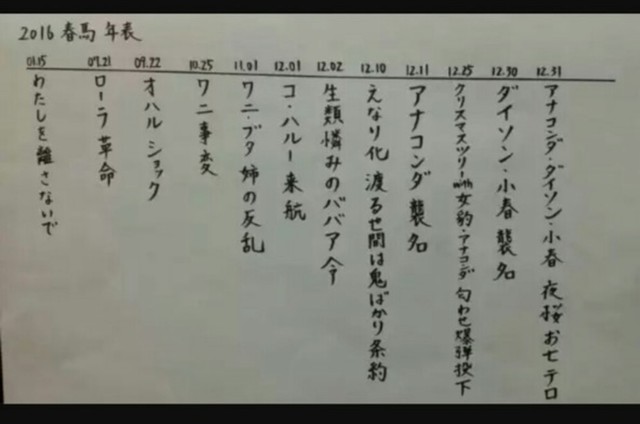 2016 春馬 年表
01.15 09.21 09.22 10.25 11.01 12.01 12.02 12.10 12.11 12.25 12.30 12.31
わたしを離さないで
ローラ革命
オハルショック
ワニ事変
ワニ・ブタ姉の反乱
コ・ハルー来航
生類憐みのババア令
えなり化 渡るせ間は鬼ばかり条約
アナコンダ襲名
クリスマスツリーwith女豹・アナコンダ 匂わせ爆弾投下
ダイソン・小春襲名
アナコンダ・ダイソン・小春 夜桜お七テロ